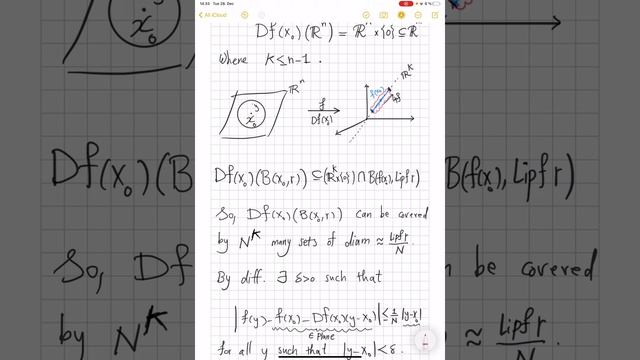 14.53 Tue 28. Dec 6 %
All iCloud
Df(x₀)(ℝⁿ) = ℝᵏ×{0} ⊆ ℝᵐ
Where K ≤ n-1 .
ℝⁿ
y
x₀
f
Df(x₀)
f(x₀)
ℝᴷ
Df(x₀)(B(x₀,r)) ⊆ (ℝᵏ×{0}) ∩ B(f(x₀), Lipf r)
So, Df(x₀)(B(x₀,r)) can be covered
by Nᴷ many sets of diam ≈ Lipf r / N
By diff. ∃ δ>0 such that
|f(y)-f(x₀)-Df(x₀)(y-x₀)| ≤ 1/N |y-x₀|
∈ Plane
for all y such that |y-x₀|<δ.
Df(x₀)(B
B(f(x₀), Lipf r)
So, Df
be covered
by Nᴷ
≈ Lipf r / N